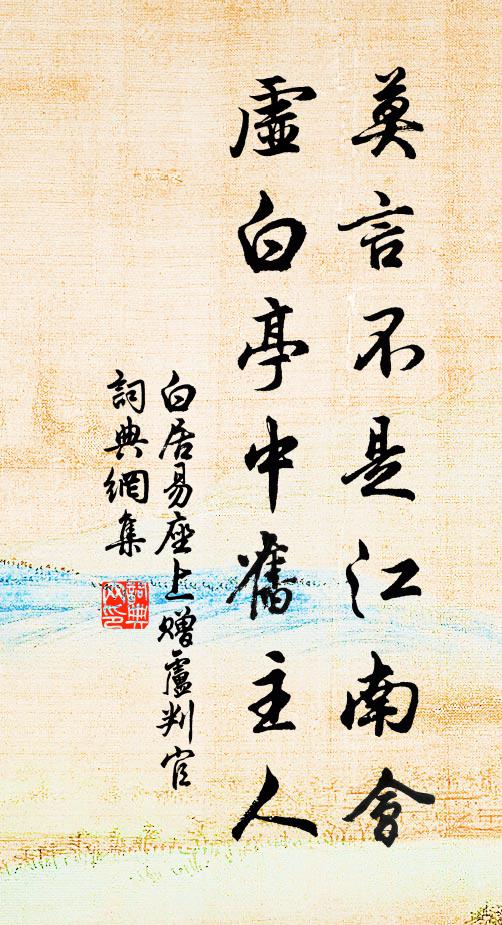 莫言不是江南會
虛白亭中舊主人
白居易座上贈盧判官
詞典網集